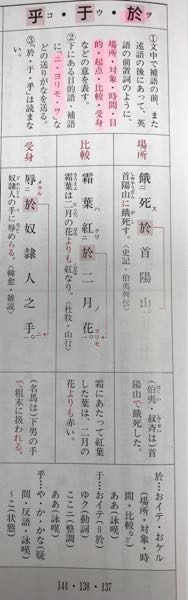 乎コ・于ウ・於ヲ
①文中で補語の前、また
述語の後にあって、英
語の前置詞のように、
場所・対象・時間・目
的・起点・比較・受身
などの意を表す。
②下にある目的語・補語
に「ニ・ヨリモ・ヲ」な
どの送りがなを送る。
③「於・于・乎」は読まな
い。
場所
餓死ス於首陽山ニ。
首陽山に餓死す。〈史記・伯夷列伝〉
(伯夷・叔斉は)首
陽山で餓死した。
比較
霜葉ハ紅ナリ於二月ノ花ヨリモ。
霜葉は二月の花よりも紅なり。〈杜牧・山行〉
霜にあたって紅葉
した葉は、二月の
花よりも赤い。
受身
辱メラル於奴隷人之手ニ。
奴隷人の手に辱めらる。〈韓愈・雑説〉
(名馬は)下男の手
で粗末に扱われる。
於…おイテ・おケル
(場所・対象・時
間・比較など)
ああ(詠嘆)
于…おイテ(=於)
ゆク(動詞)
ここニ(整調)
ああ(詠嘆)
乎…や・か・かな(疑
問・反語・詠嘆)
～こ(状態)
144・138・137